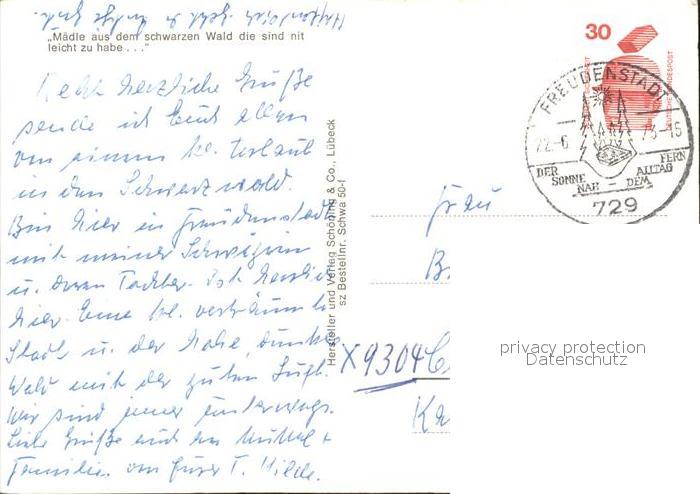 „Mädle aus dem schwarzen Wald die sind nit
leicht zu habe . . ."
Recht herzliche Grüße
sende ich Euch allen
von einem kl. Urlaub
in den Schwarzwald.
Bin hier in Freudenstadt
mit meiner Schwägerin
u. deren Tochter. Ist herrlich
hier. Eine kl. verträumte
Stadt u. der hohe, dunkle
Wald mit der guten Luft.
Wir sind immer unterwegs.
Liebe Grüße auch an
Familie von Eurer T. Hilde.
Hersteller und Verlag Schöning & Co., Lübeck
sz Bestellnr. Schwa 50-f
30
DEUTSCHE BUNDESPOST
FREUDENSTADT
22-6
73-15
DER SONNE NAH - DEM ALLTAG FERN
729
Frau
B
X9304
Ka
privacy protection
Datenschutz